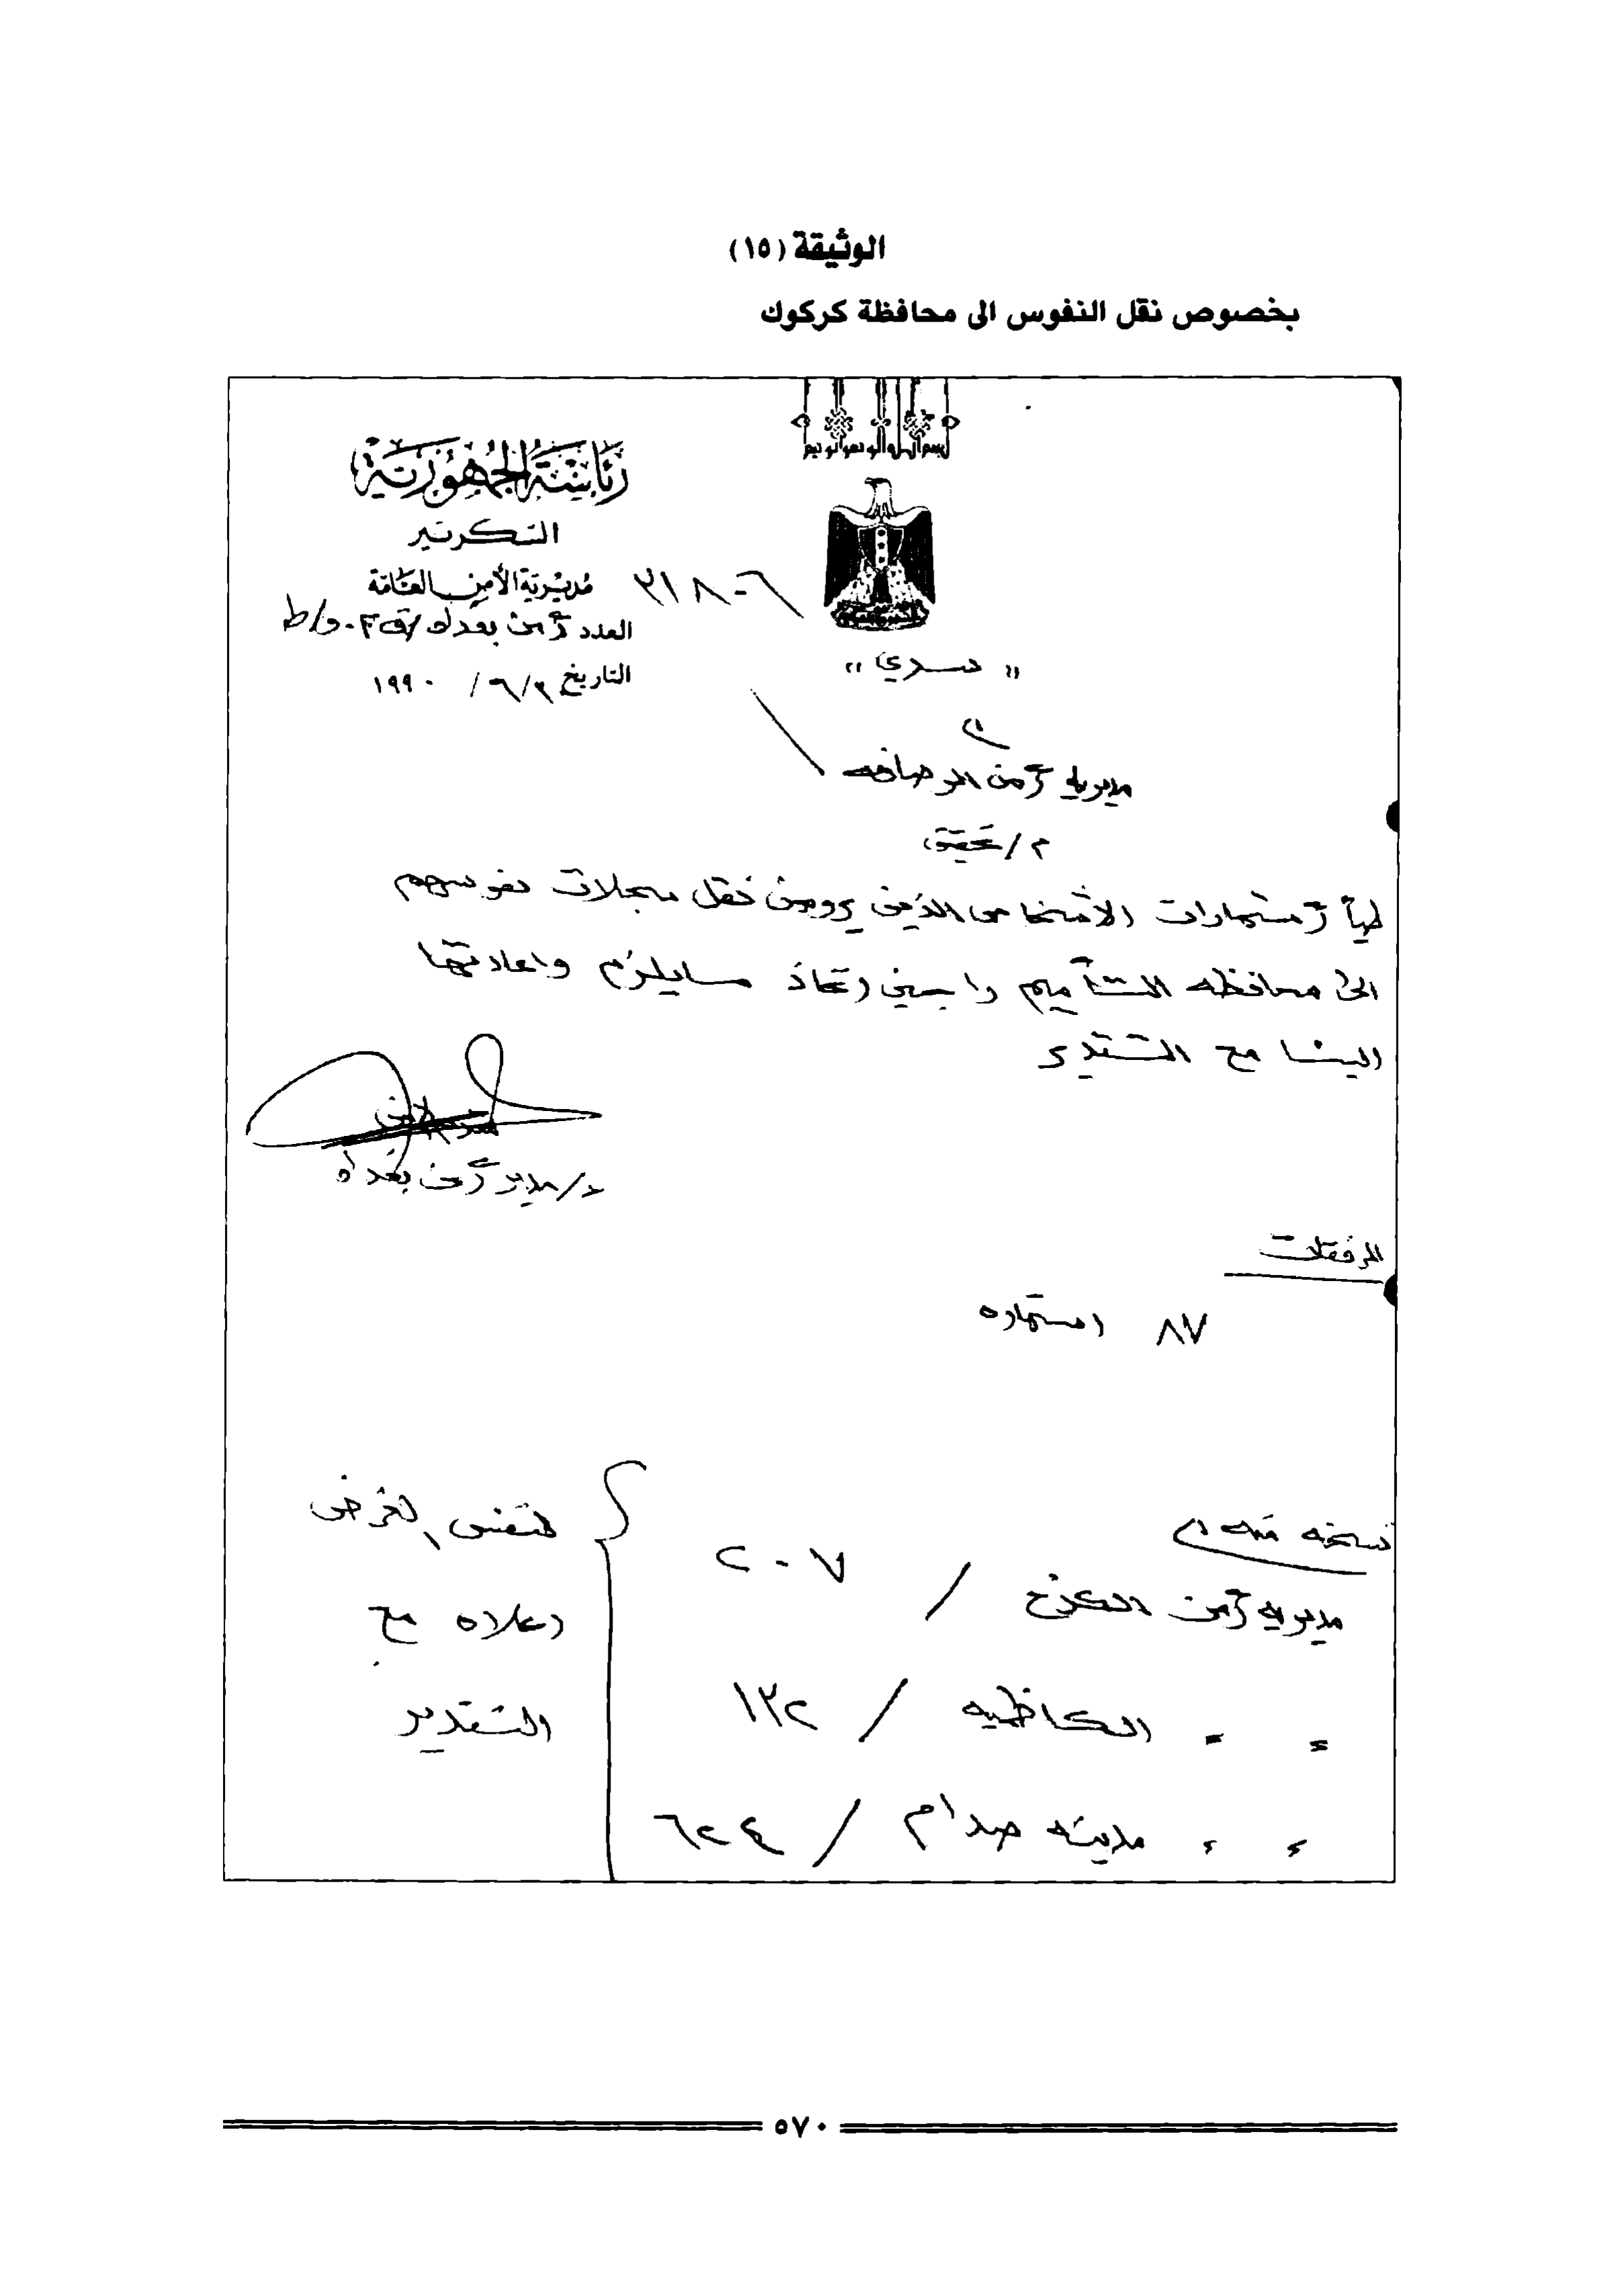 الوثيقة (١٥)
بخصوص نقل النفوس الى محافظة كركوك
رئاسة الجمهورية
السكرتير
مديرية الأمن العامة
العدد أمن بغداد/ق
٣١٨٠٦
التاريخ ٣/٦/ ١٩٩٠
" سري "
مديرية أمن الرصافه
م/تحقيق
طياً استمارات الاشخاص الذين يرومون نقل سجلات نفوسهم
الى محافظه التأميم راجين اتخاذ مايلزم واعادتها
الينا مع التقدير
ع/مدير أمن بغداد
المرفقات
٨٧ استماره
نسخه منه
مديريه أمن الكرخ / ٢٠٧
= = الكاظميه / ١٣٢
= = مدينه صدام / ٦٢٤
لنفس الغرض
اعلاه مع
التقدير
٥٧٠